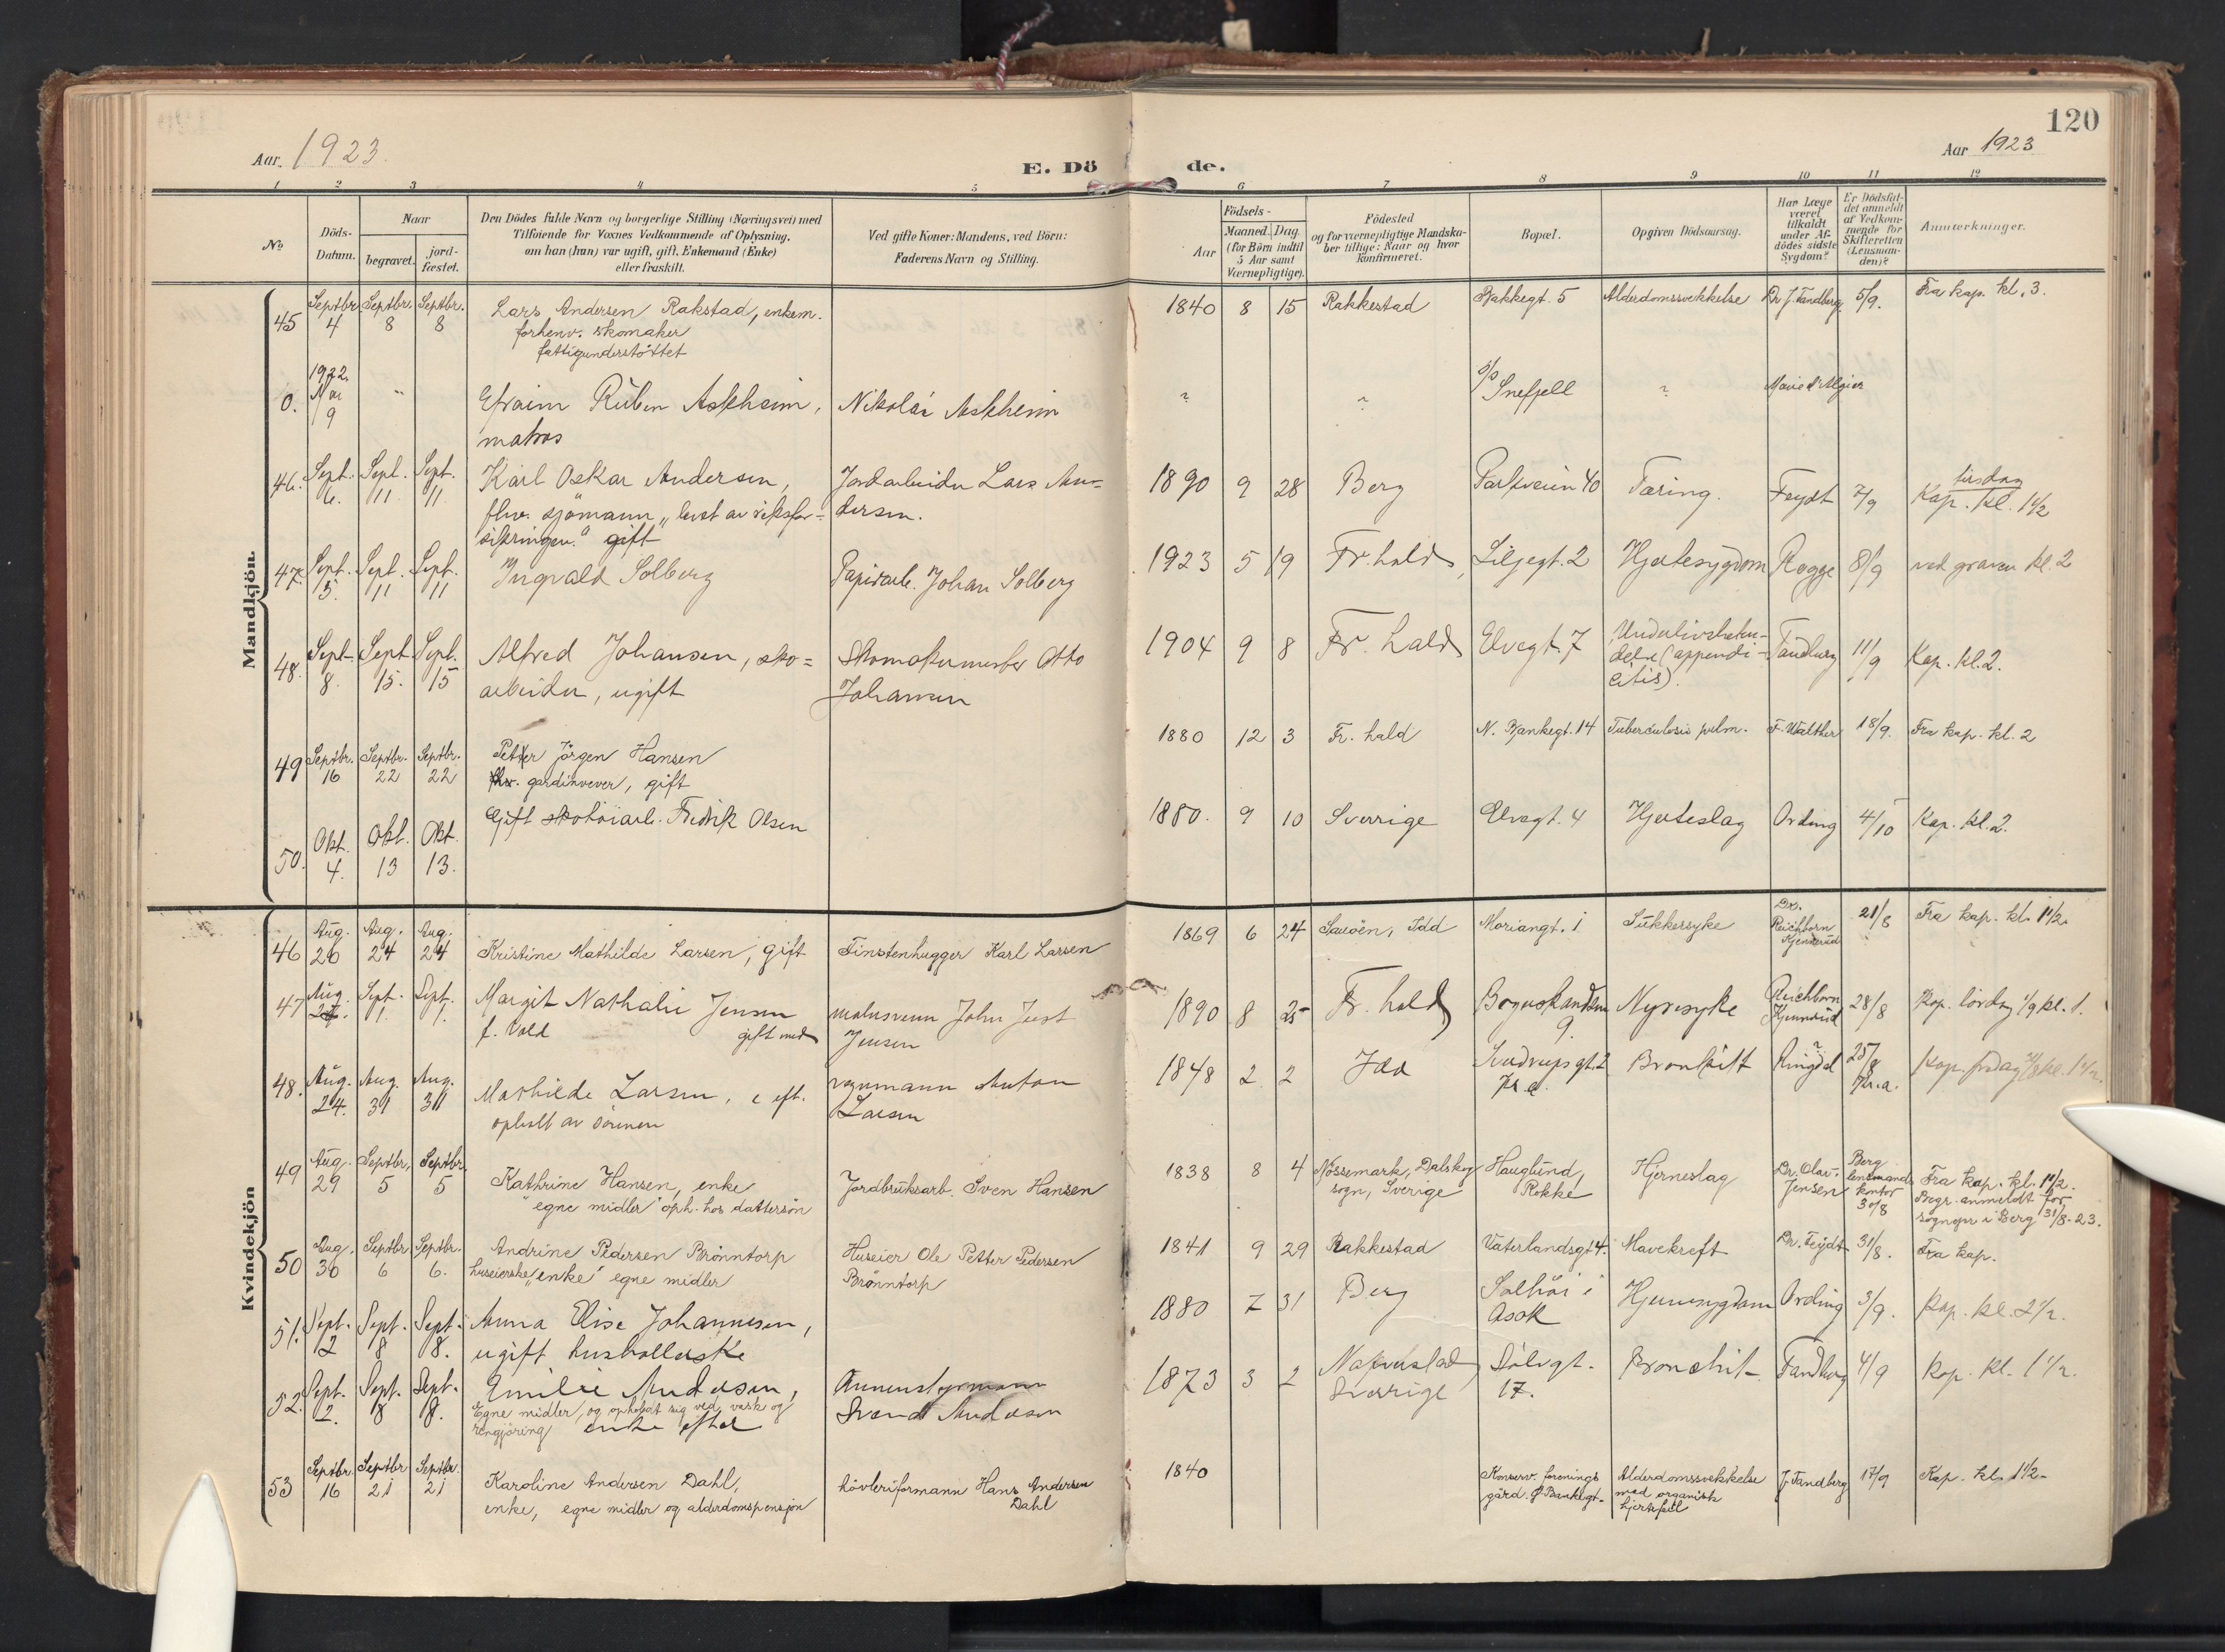 120
Aar 1923
E. Döde.
Aar 1923
1 2 3 4 5 6 7 8 9 10 11 12
No
Döds-Datum.
Naar
begravet.
jord-fæstet.
Den Dödes fulde Navn og borgerlige Stilling (Næringsvei) med
Tilföiende for Voxnes Vedkommende af Oplysning,
om han (hun) var ugift, gift, Enkemand (Enke)
eller fraskilt.
Ved gifte Koner: Mandens, ved Börn:
Faderens Navn og Stilling.
Födsels-
Aar
Maaned. Dag.
(for Börn indtil
5 Aar samt
Værnepligtige).
Födested
og for værnepligtige Mandska-
ber tillige: Naar og hvor
konfirmeret.
Bopæl.
Opgiven Dödsaarsag.
Har Læge
været
tilkaldt
under Af-
dödes sidste
Sygdom?
Er Dödsfal-
det anmeldt
af Vedkom-
mende for
Skifteretten
(Lensman-
den)?
Anmærkninger.
Mandkjön.
45 Septbr. 4 Septbr. 8 Septbr. 8 Lars Andersen Rakstad, enkem. 1840 8 15 Rakkestad Bakkegt. 5 Alderdomssvekkelse Dr J. Tandberg 5/9. Fra kap. kl. 3.
forhenv. skomaker
fattigunderstöttet
0. 1922. Mai 9 " Efraim Ruben Askheim, Nikolai Askheim ? ? s/s Snefjell ? Alger
matros
46. Sept. 6. Sept. 11 Sept. 11 Karl Oskar Andersen, Jordarbeider Lars An- 1890 9 28 Berg Parkveien 40 Tæring. Feydt 7/9 tirsdag Kap. kl. 1 1/2
fhv. sjömann "levet av riksfor- dersen.
sikringen." gift
47. Sept. 5. Sept. 11 Sept. 11 Ingvald Solberg Papirarb. Johan Solberg 1923 5 19 Fr.hald Liljegt. 2 Hjertesygdom Rogge 8/9 ved graven kl. 2
48. Sept. 8. Sept. 15. Sept. 15 Alfred Johansen, sko- Skomakermester Otto 1904 9 8 Fr. hald Elvegt. 7 Underlivsbeten- Tandberg 11/9 Kap. kl. 2.
arbeider, ugift Johansen delse (appendi-
citis).
49 Septbr. 16 Septbr. 22 Septbr. 22 Petter Jörgen Hansen 1880 12 3 Fr. hald N. Bankegt. 14 Tuberculosis pulm. F. Walther 18/9. Fra kap. kl. 2
fhv. gardinvever, gift
50. Okt. 4. Okt. 13 Okt. 13. Gift skotöiarb. Fredrik Olsen 1880. 9 10 Sverrige Elvegt. 4 Hjerteslag Ording 4/10 Kap. kl. 2.
Kvindekjön
46 Aug. 20 Aug. 24 Aug. 24 Kristine Mathilde Larsen, gift Finstenhugger Karl Larsen 1869 6 24 Sauöen, Idd Mariangt. 1 Sukkersyke Dr. Reichborn Kjennerud 21/8 Fra kap. kl. 1 1/2.
47 Aug. Sept. 1. Sept. 1. Margit Nathalie Jensen malersvenn John Just 1890 8 25 Fr. hald 9 Nyresyke Reichborn Kjennerud 28/8 Kap. lördag 1/9 kl. 1.
f. Vold gift med Jensen
48. Aug. 24. Aug. 31 Aug. 31 Mathilde Larsen, e. eft. Anton 1848 2 2 Idd Bronkitt Ringdal 25/8 Kap. fredag 31/8 kl. 1 1/2.
opholt av sönnen Larsen
49 Aug. 29 Septbr. 5 Septbr. 5 Kathrine Hansen, enke Jordbruksarb. Sven Hansen 1838 8 4 Nössemark, Dalskog Hauglund, Hjerneslag Dr. Olav-Jensen Berg lensmands kontor 30/8 Fra kap. kl. 1 1/2.
"egne midler" oph. hos dattersön sogn, Sverige Rokke Begr. anmeldt for
sognepr i Berg 31/8-23.
50 Aug. 30 Septbr. 6 Septbr. 6. Andrine Pedersen Brönntorp Huseier Ole Petter Pedersen 1841 9 29 Rakkestad Vaterlandsgt 4. Mavekreft Dr. Feydt 31/8. Fra kap.
huseierske "enke" egne midler Brönntorp
51. Sept. 2 Sept. 8 Sept. 8. Anna Elise Johannesen, 1880 7 31 Berg Solhöi i Hjernesygdom Ording 3/9. Kap. kl. 2 1/2.
ugift husholderske Asak
52. Sept. 2. Sept. 8 Sept. 8. Emilie Andersen, Annenstyrmann 1873 3 2 Sölvgt. Bronchit Tandberg 4/9 Kap. kl. 1 1/2.
Egne midler, og opholdt sig ved vask og Svend Andersen Sverrige 17.
rengjöring enke efter
53 Septbr. 16 Septbr. 21 Septbr. 21 Karoline Andersen Dahl, hövleriformann Hans Andersen 1840 Konserv. forenings Alderdomssvekkelse J. Tandberg 17/9 Kap. kl. 1 1/2
enke, egne midler og alderdomspensjon Dahl gård. Ø. Bankegt. med organisk
hjertefeil